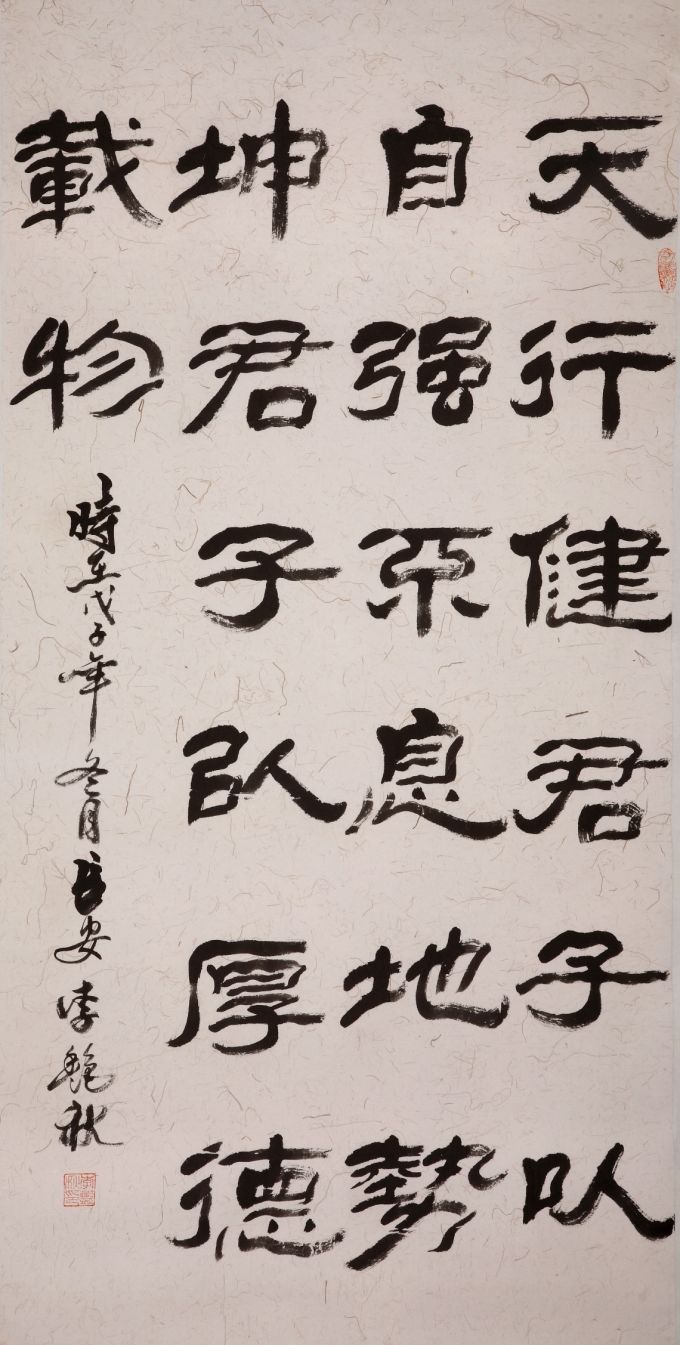 天行健君子以
自强不息地勢
坤君子以厚德
載物
時在戊子年冬月長安李艳秋